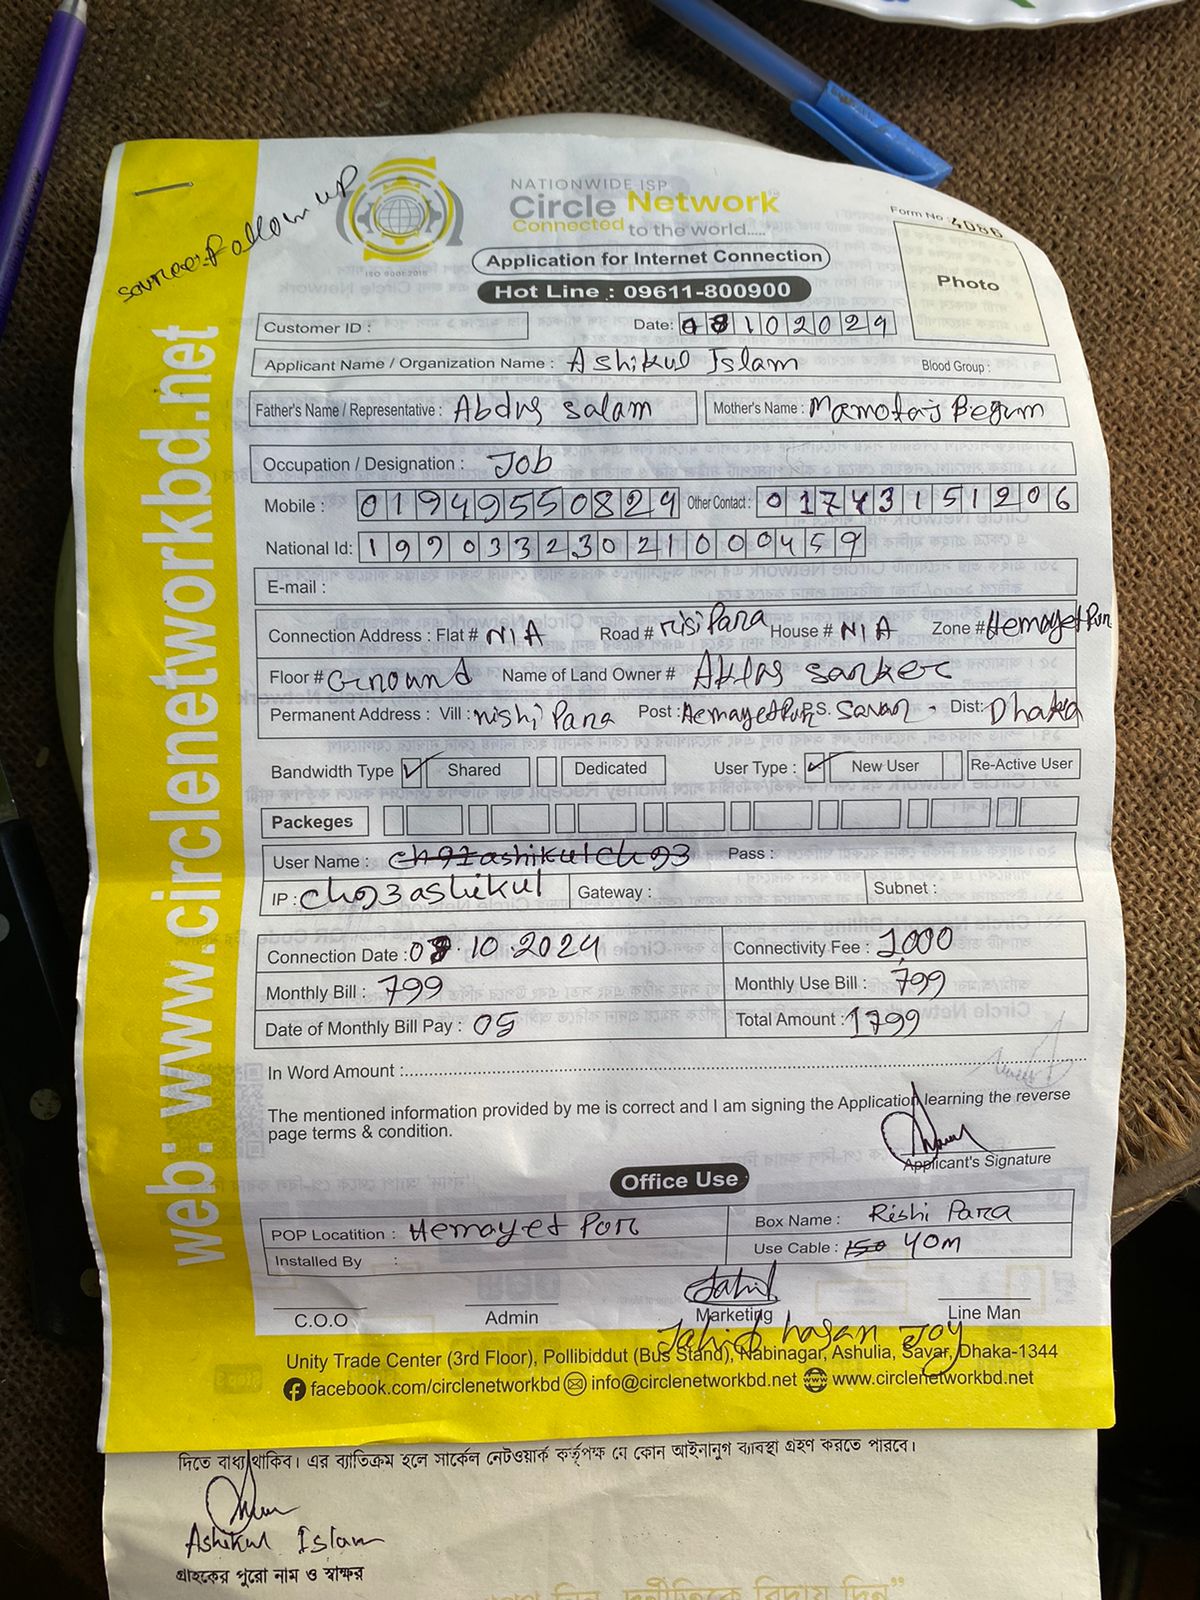 source: Follow up
NATIONWIDE ISP
Circle Network
Connected to the world.....
ISO 9001:2015
Form No : 4086
Application for Internet Connection
Hot Line : 09611-800900
Photo
Customer ID :
Date: 08102024
Applicant Name / Organization Name : Ashikul Islam Blood Group :
Father's Name / Representative : Abdus Salam Mother's Name : Momotaj Begum
Occupation / Designation : Job
Mobile : 01949550824 Other Contact : 01743151206
National Id: 19903323021000459
E-mail :
Connection Address : Flat # N/A Road # risi Para House # N/A Zone # Hemayet Pur
Floor # Ground Name of Land Owner # Aktas sarker
Permanent Address : Vill : rishi Para Post : Hemayet Pur P.S. Savar - Dist: Dhaka
Bandwidth Type ✓ Shared Dedicated User Type : ✓ New User Re-Active User
Packeges
User Name : ch91ashikulch93 Pass :
IP : ch93ashikul Gateway : Subnet :
Connection Date : 08.10.2024 Connectivity Fee : 1,000
Monthly Bill : 799 Monthly Use Bill : 799
Date of Monthly Bill Pay : 05 Total Amount : 1799
In Word Amount :
The mentioned information provided by me is correct and I am signing the Application learning the reverse
page terms & condition.
Applicant's Signature
Office Use
POP Locatition : Hemayet Pur Box Name : Rishi Para
Installed By : Use Cable : 150 40m
Jahid
C.O.O Admin Marketing Line Man
Jahid hasan Joy
Unity Trade Center (3rd Floor), Pollibiddut (Bus Stand), Nabinagar, Ashulia, Savar, Dhaka-1344
facebook.com/circlenetworkbd info@circlenetworkbd.net www.circlenetworkbd.net
web: www.circlenetworkbd.net
দিতে বাধ্য থাকিব। এর ব্যতিক্রম হলে সার্কেল নেটওয়ার্ক কর্তৃপক্ষ যে কোন আইনানুগ ব্যাবস্থা গ্রহণ করতে পারবে।
Ashikul Islam
গ্রাহকের পুরো নাম ও স্বাক্ষর